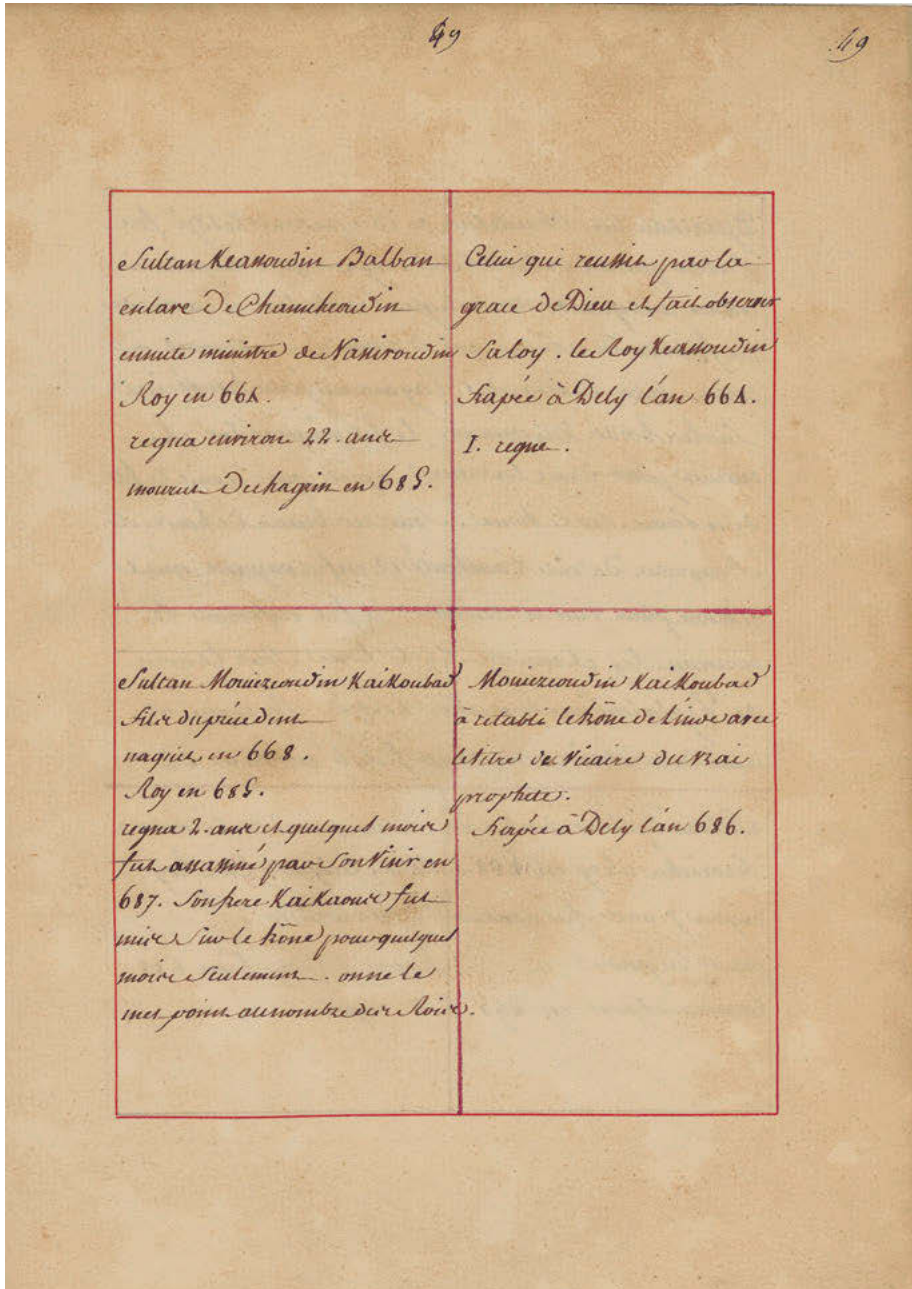 49
49
Sultan Keassoudin Balban
esclave de Chamcheoudin
ensuite ministre de Nassiroudin
Roy en 664.
regna environ 22. ans
mourut de chagrin en 685.
Celui qui reussit par la
grace de Dieu et fait observer
Sa loy. le Roy Keassoudin
frapée à Dely l'an 664.
I. regne.
Sultan Mouiezeoudin KaiKoubad
fils du précedent
naquit en 668.
Roy en 685.
regna 2. ans et quelques mois
fut assassiné par Son Visir en
687. Son frere KaiKaous fut
mis Sur le trône pour quelques
mois Seulement. on ne le
met point au nombre des Rois.
Mouiezeoudin KaiKoubad
à retabli le trône de l'inde avec
le titre de Vicaire du vrai
prophete.
frapée à Dely l'an 686.